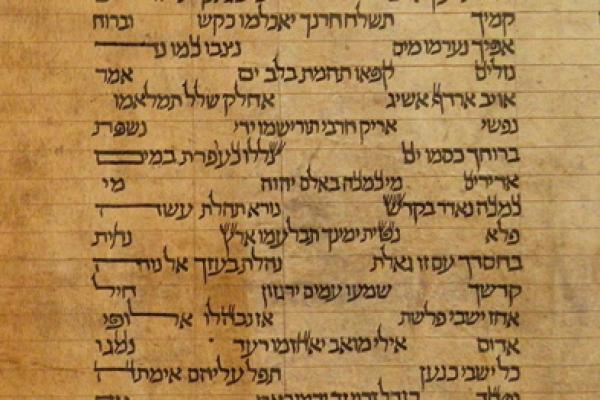 קמיך תשלח חרנך יאכלמו כקש וברוח
אפיך נערמו מים נצבו כמו נד
נזלים קפאו תהמת בלב ים אמר
אויב ארדף אשיג אחלק שלל תמלאמו
נפשי אריק חרבי תורישמו ידי נשפת
ברוחך כסמו ים צללו כעפרת במים
אדירים מי כמכה באלם יהוה מי
כמכה נאדר בקדש נורא תהלת עשה
פלא נטית ימינך תבלעמו ארץ נחית
בחסדך עם זו גאלת נהלת בעזך אל נוה
קדשך שמעו עמים ירגזון חיל
אחז ישבי פלשת אז נבהלו אלופי
אדום אילי מואב יאחזמו רעד נמגו
כל ישבי כנען תפל עליהם אימתה